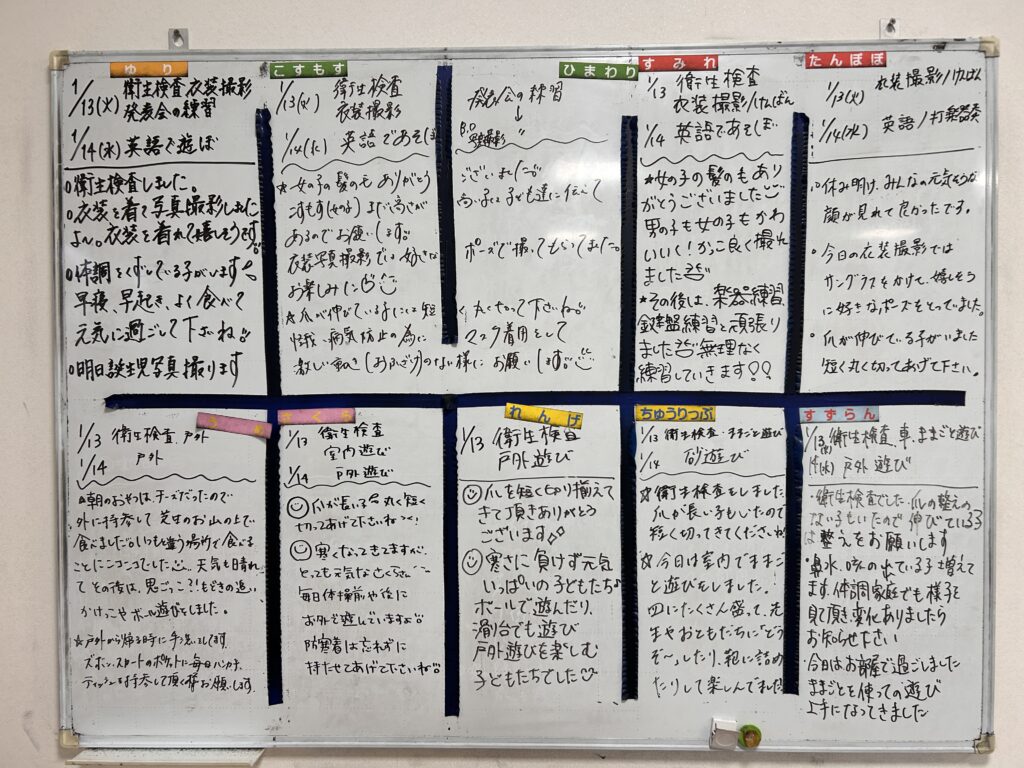 ゆり
1/13(火) 衛生検査 衣装撮影
発表会の練習
1/14(水) 英語で遊ぼ
○衛生検査しました。
○衣装を着て写真撮影しました
よん。衣装を着れて嬉しそうです
○体調をくずしている子がいます
早寝、早起き、よく食べて
元気に過ごして下さいね
○明日誕生児写真撮ります
こすもす
1/13(火) 衛生検査
衣装撮影
1/14(水) 英語であそぼ
★女の子の髪の毛 ありがとう
こすもす(女の子) まだ高さが
あるのでお願いします
衣装写真撮影では好きな
お楽しみに
★爪が伸びている子
怪我、病気防止の為に
激しい動き のない様に
ひまわり
発表会の練習
↓
ございました
子ども達に伝えて
ポーズで撮ってもらってました。
丸く切って下さいね
マスク着用をして
お願いします
すみれ
1/13 衛生検査
衣装撮影/けんばん
1/14 英語であそぼ
★女の子の髪の毛あり
がとうございました
男の子も女の子もかわ
いい!かっこ良く撮れ
ました
★その後は、楽器練習、
鍵盤練習と頑張り
ました 無理なく
練習していきます!!
たんぽぽ
1/13(火) 衣装撮影/けんばん
1/14(水) 英語/打楽器奏
○休み明け、みんなの元気そうな
顔が見れて良かったです。
○今日の衣装撮影では
サングラスをかけて、嬉しそう
に好きなポーズをとっていました。
○爪が伸びている子がいました
短く丸く切ってあげて下さい。
1/13 衛生検査、戸外
1/14 戸外
朝のおやつは、チーズだったので
外に持参して芝生のお山の上で
食べました いつもと違う場所で食べる
ことにニコニコでした 天気も晴れ
て その後は、鬼ごっこ?!もどきの追い
かけっこやボール遊びをしました。
☆戸外から帰る時に手洗いします。
ズボン、スカートのポケットに毎日ハンカチ、
ティッシュを持参して頂く様お願いします。
さくら
1/13 衛生検査
室内遊び
1/14 戸外遊び
爪が長い子 丸く短く
切ってあげて下さいねっ!
寒くなってきてますが、
とっても元気なさくらさん
毎日体操前や後に
お外で遊んでいますよ
防寒着は忘れずに
持たせてあげて下さいね
れんげ
1/13 衛生検査
戸外遊び
爪を短く切り揃えて
きて頂きありがとう
ございます
寒さに負けず元気
いっぱいの子どもたち
ホールで遊んだり、
滑り台でも遊び
戸外遊びを楽しむ
子どもたちでした
ちゅうりっぷ
1/13 衛生検査・ままごと遊び
1/14 砂遊び
☆衛生検査をしました
爪が長い子もいたので
短く切ってきてくださいね
☆今日は室内でままご
と遊びをしました!
皿にたくさん盛って、先
生やおともだちに「どう
ぞ〜」したり、鞄に詰め
たりして楽しんでました
すずらん
1/13(火) 衛生検査、車、ままごと遊び
14(水) 戸外遊び
・衛生検査でした 爪の整えの
ない子もいたので 伸びている子
は整えをお願いします
・鼻水、咳の出ている子増えて
ます。体調家庭でも様子を
見て頂き、変化ありましたら
お知らせ下さい
・今日はお部屋で過ごしました
ままごとを使っての遊び
上手になってきました